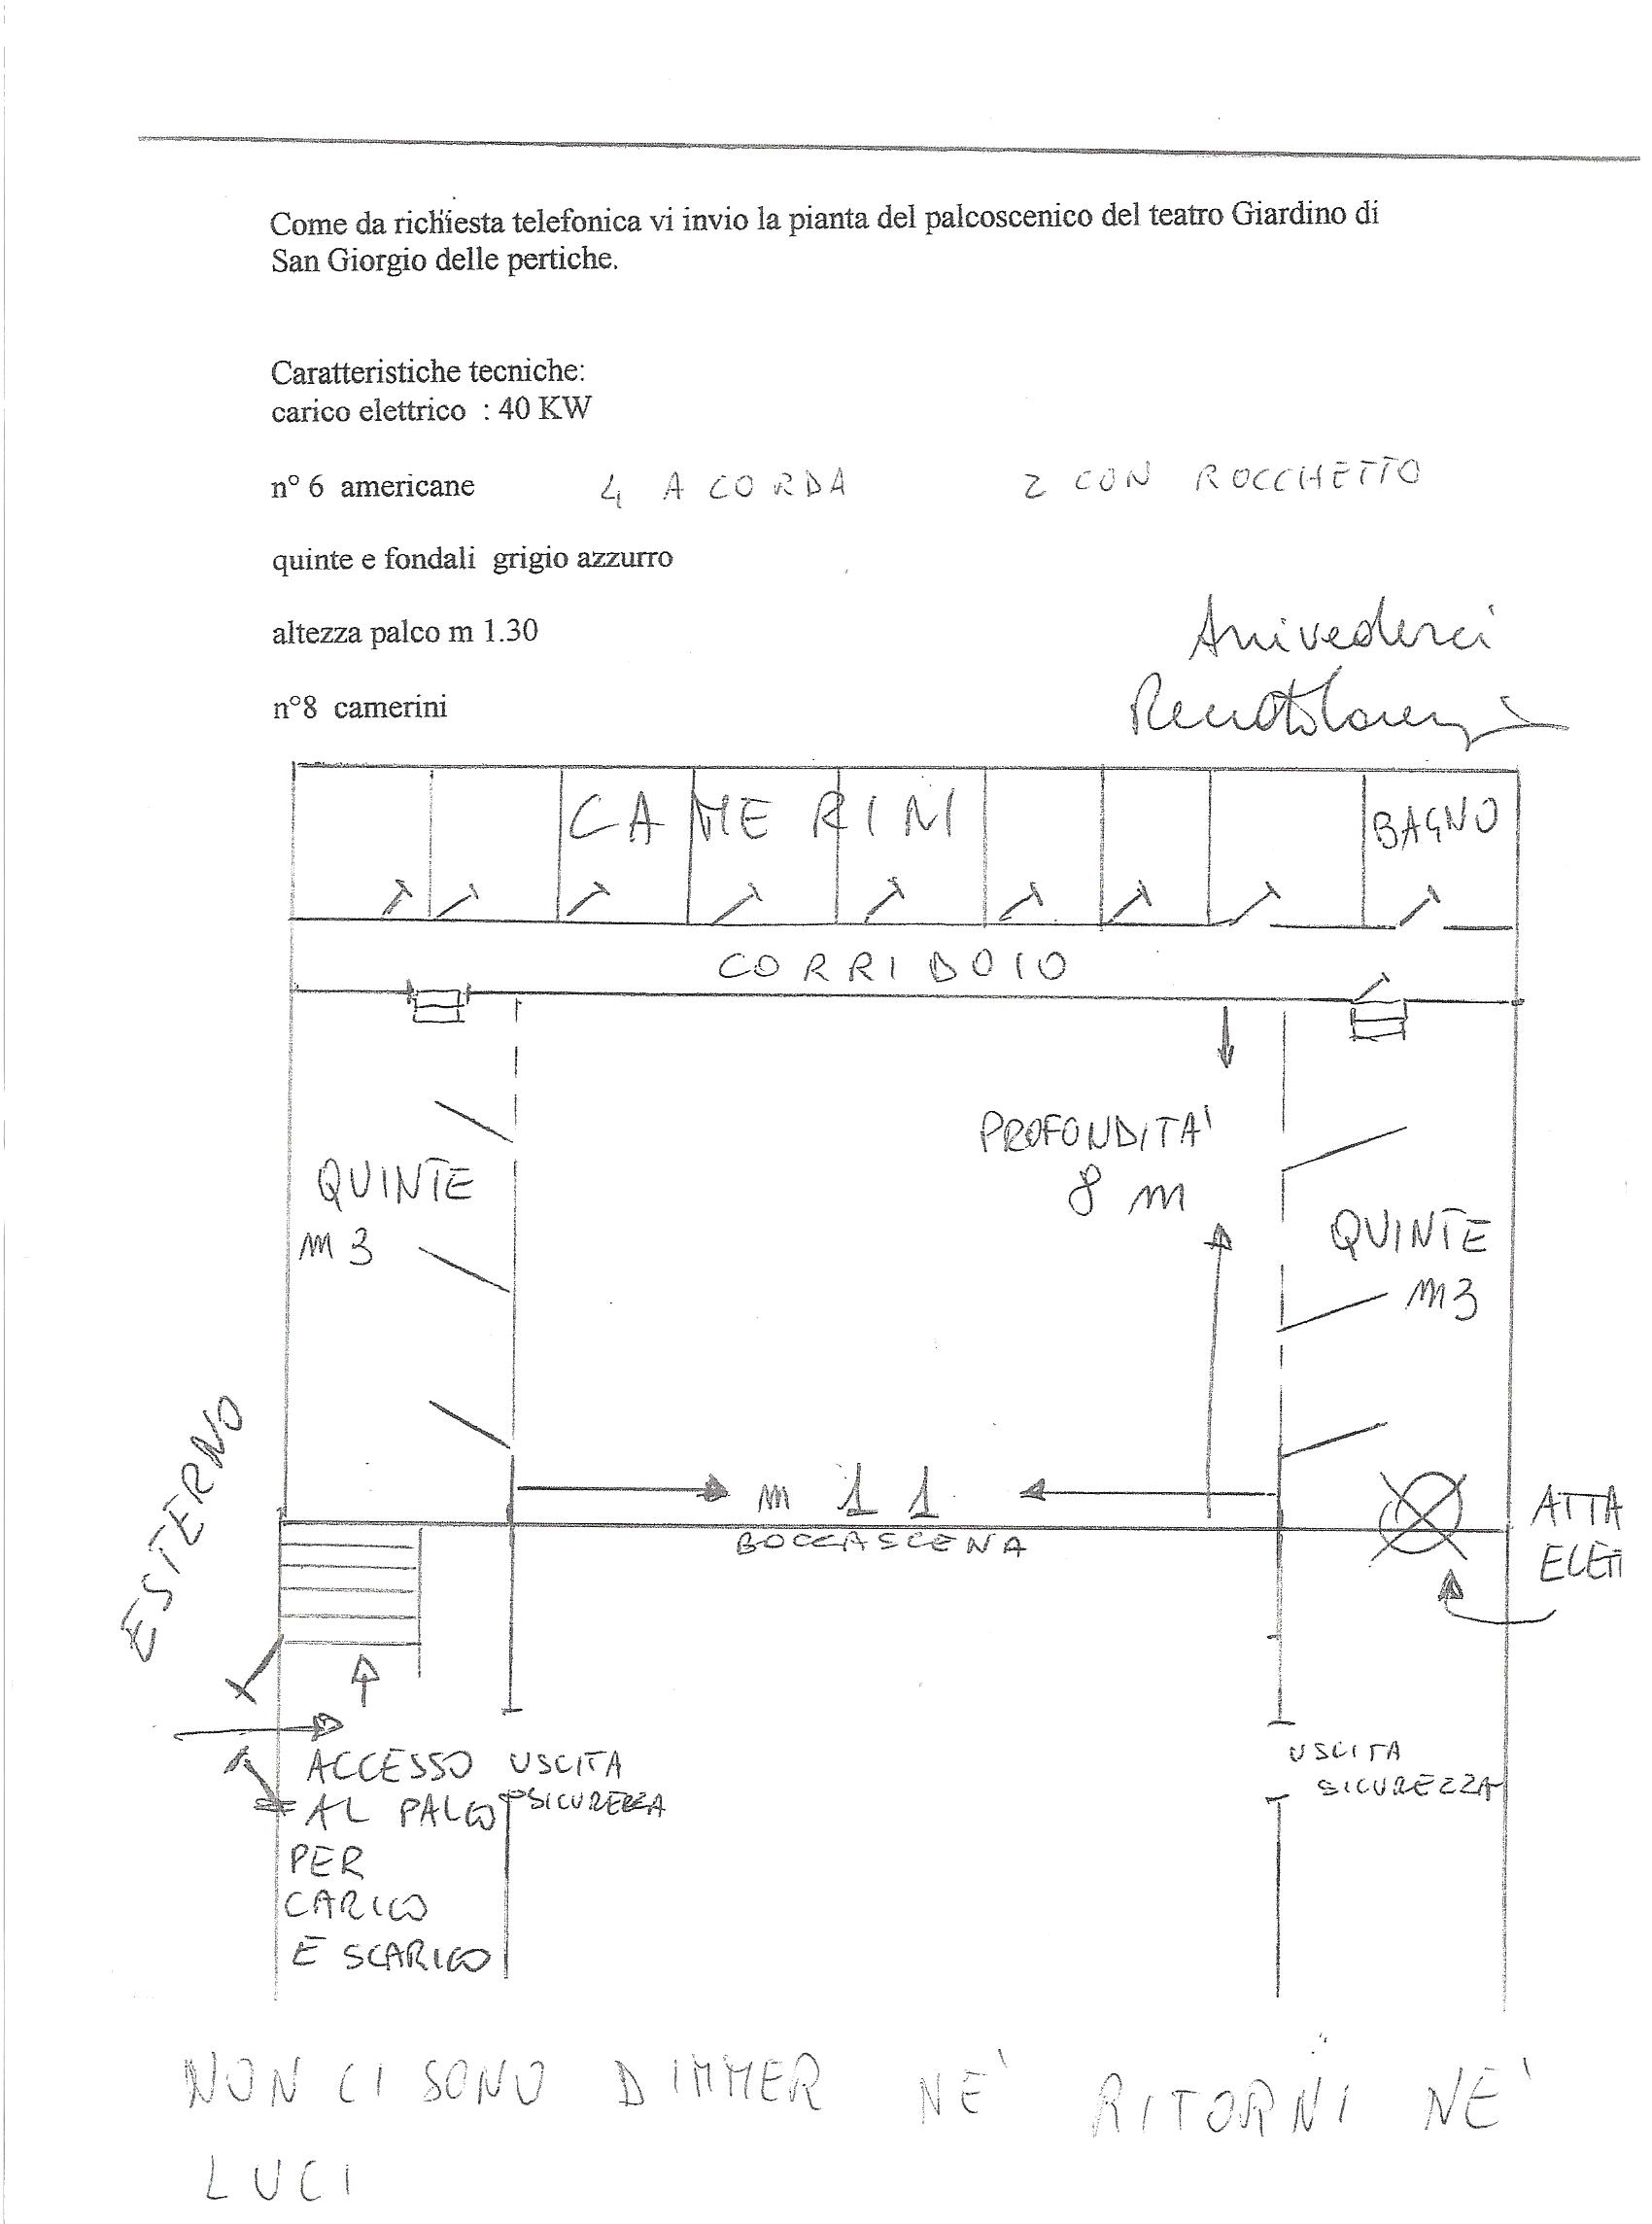 Come da richiesta telefonica vi invio la pianta del palcoscenico del teatro Giardino di
San Giorgio delle pertiche.
Caratteristiche tecniche:
carico elettrico : 40 KW
n° 6 americane 4 A CORDA 2 CON ROCCHETTO
quinte e fondali grigio azzurro
altezza palco m 1.30
Arrivederci
n°8 camerini
CAMERINI
BAGNO
CORRIDOIO
PROFONDITA'
8 m
QUINTE
m 3
QUINTE
m 3
ESTERNO
m 11
BOCCASCENA
ATTA
ELETT
ACCESSO
AL PALCO
PER
CARICO
E SCARICO
USCITA
SICUREZZA
USCITA
SICUREZZA
NON CI SONO DIMMER NE' RITORNI NE'
LUCI